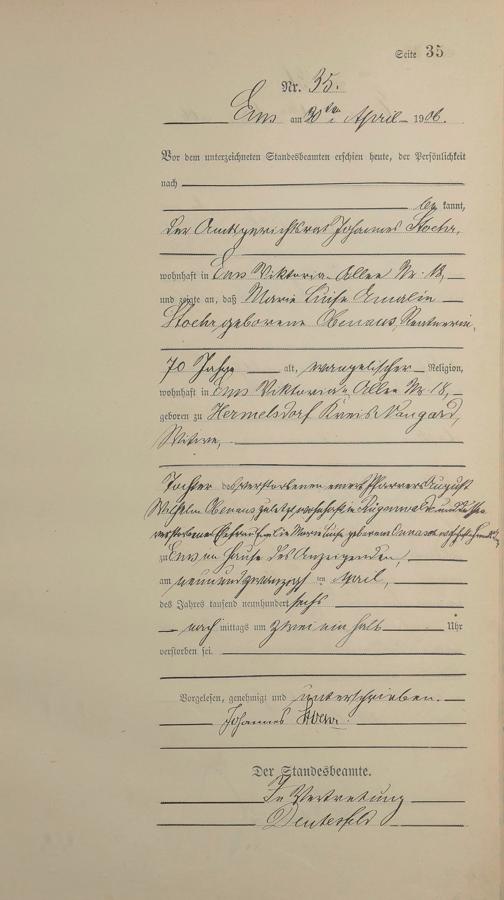 Seite 35
Nr. 35.
Ems am 30ten April 1906.
Vor dem unterzeichneten Standesbeamten erschien heute, der Persönlichkeit
nach
be kannt,
der Amtsgerichtsrat Johannes Stoehr,
wohnhaft in Ems Viktoria-Allee Nr. 18,
und zeigte an, daß Marie Luise Emalie
Stoehr, geborene Obenaus, Rentnerin,
70 Jahre alt, evangelischer Religion,
wohnhaft in Ems Viktoria-Allee Nr 18,
geboren zu Hermelsdorf Kreis Naugard,
Witwe,
Tochter des verstorbenen Pfarrers August
Wilhelm Obenaus zuletzt wohnhaft in Rügenwalde und dessen
verstorbene Ehefrau Emilie Marie Luise geborene
zu Ems im Hause des Anzeigenden,
am neunundzwanzigsten April,
des Jahres tausend neunhundert sechs
nach mittags um zwei ein halb Uhr
verstorben sei.
Vorgelesen, genehmigt und unterschrieben.
Johannes Stoehr
Der Standesbeamte.
In Vertretung